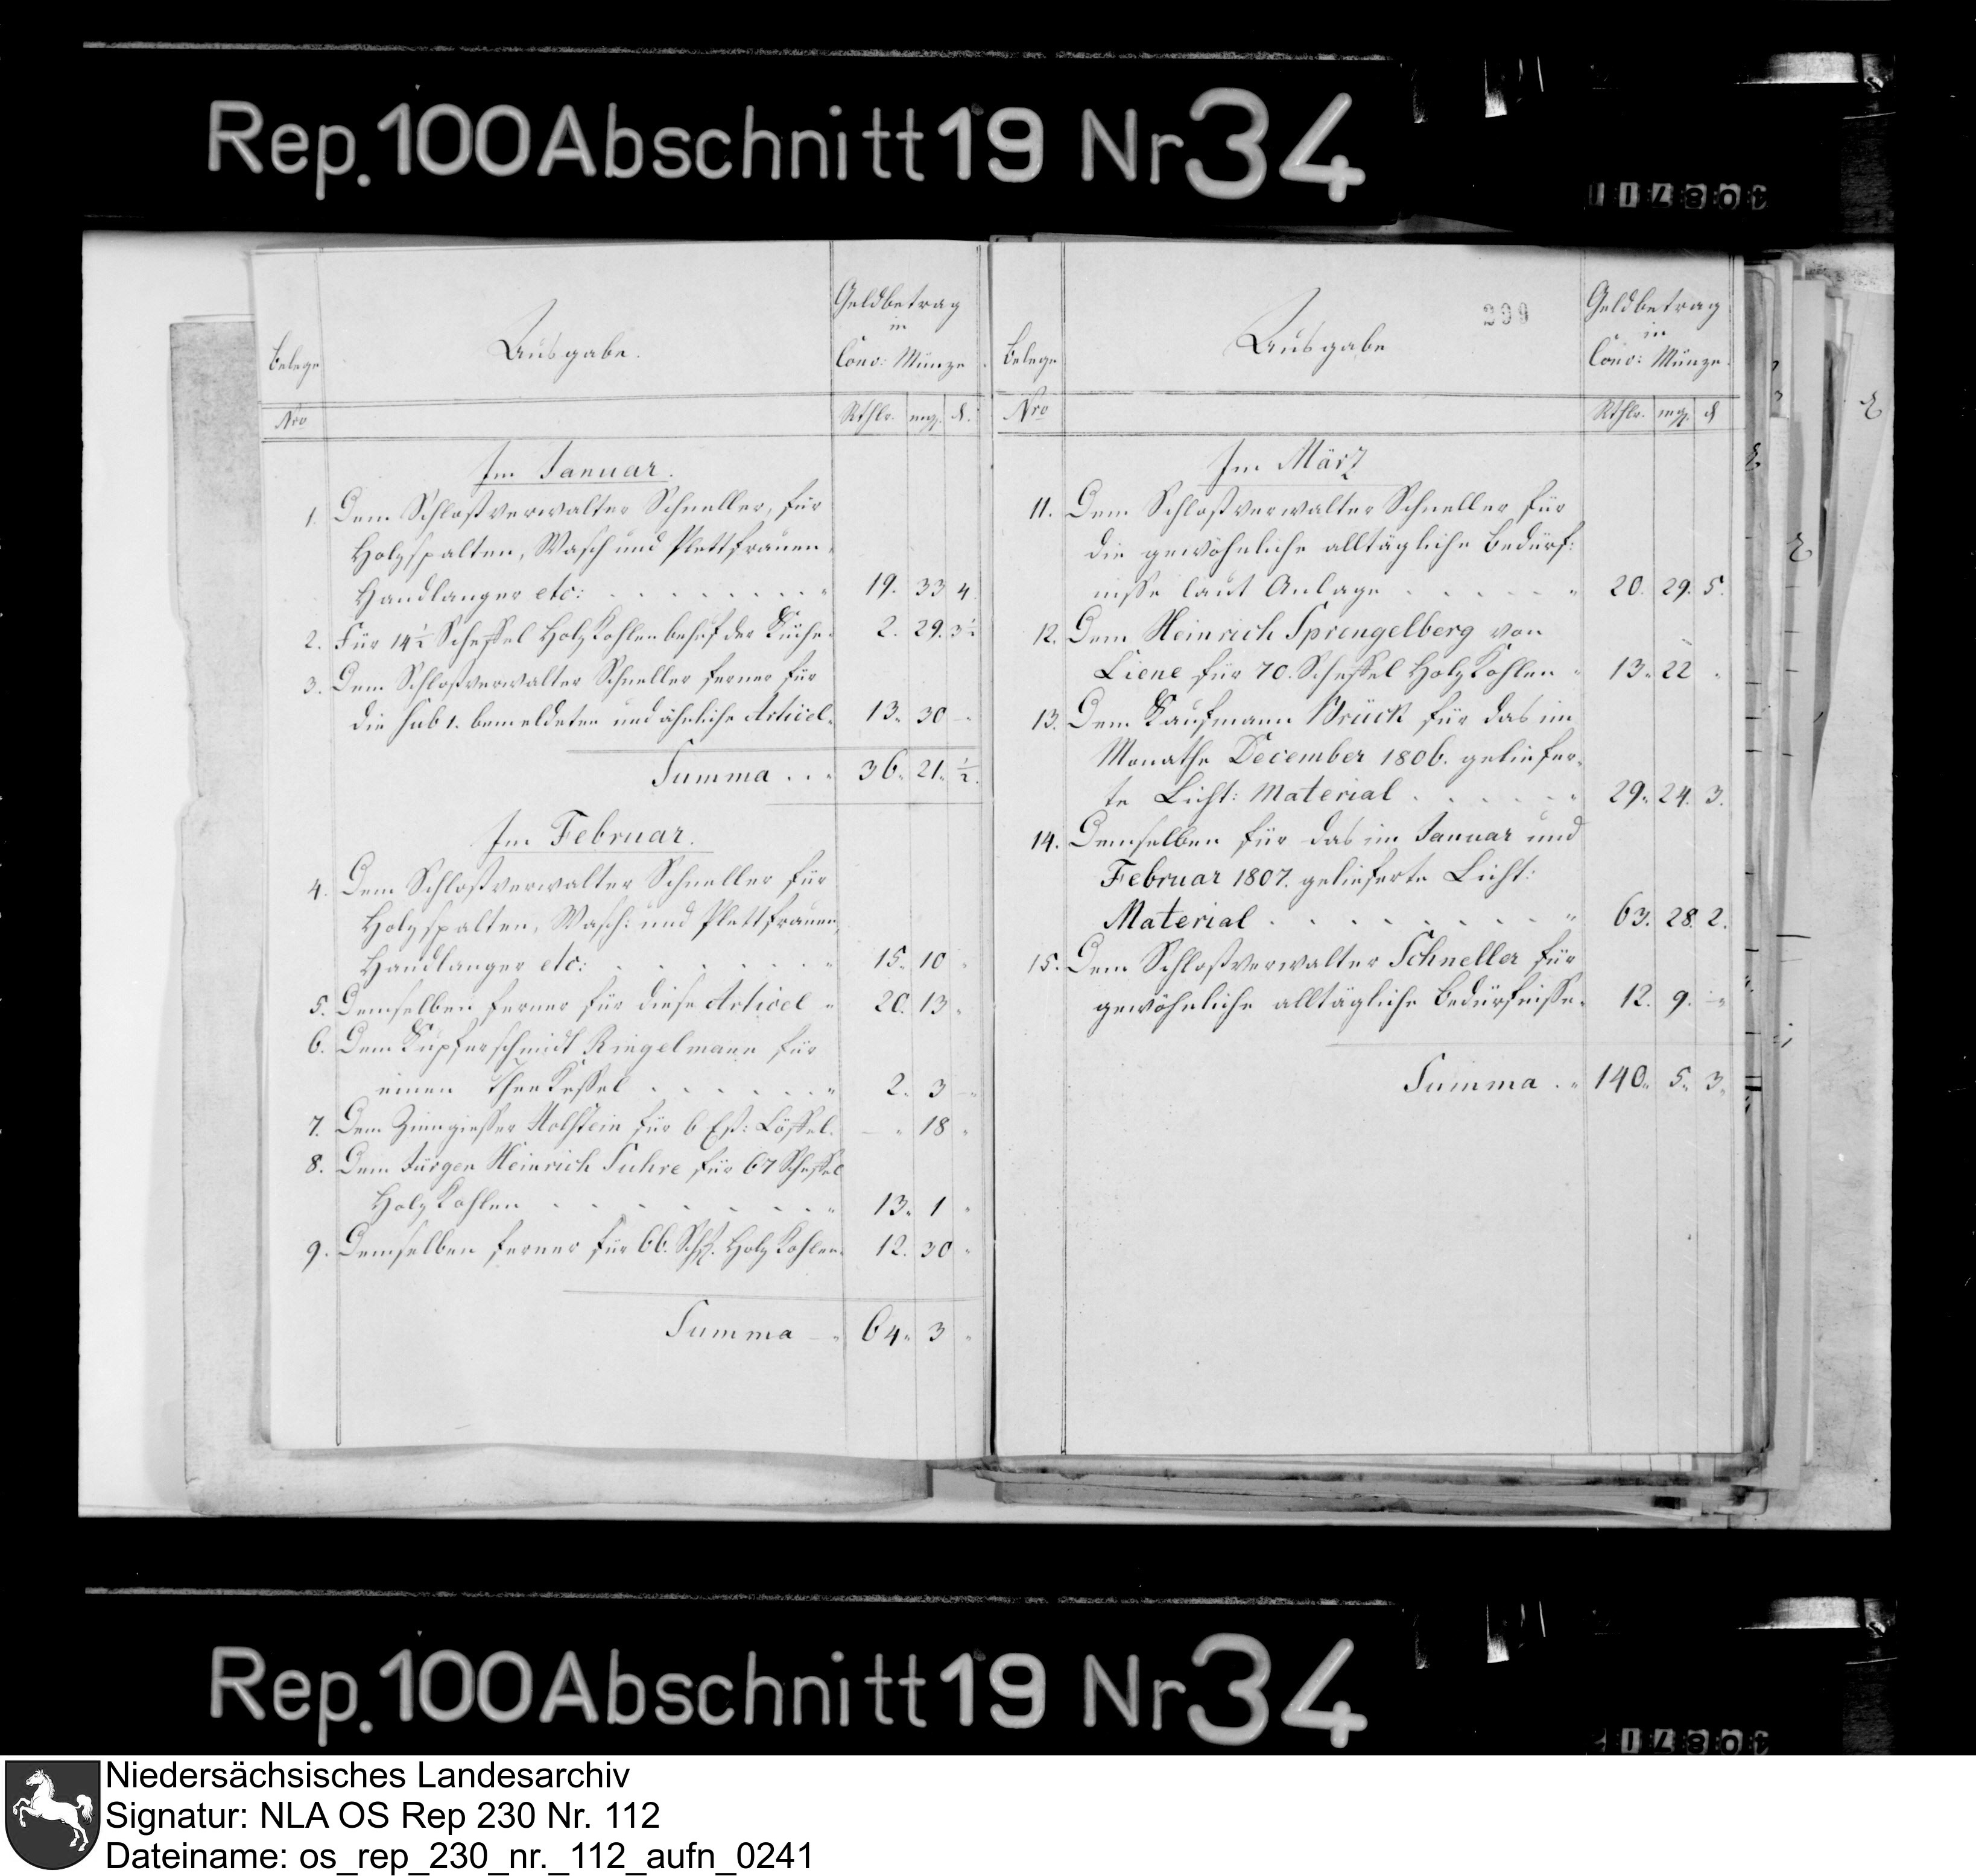 Rep. 100 Abschnitt 19 Nr 34
Belege
Nro
Ausgabe.
Geldbetrag
in
Conv: Münze
Rthlr. mg. d.
Im Januar.
1. Dem Schloßverwalter Schneller, für
Holzspalten, Wasch und Plettfrauen
Handlanger etc: 19. 33 4.
2. Für 14 1/2 Scheffel Holzkohlen behuf der Küche. 2. 29. 3 1/2
3. Dem Schloßverwalter Schneller ferner für
die sub 1. bemeldeten und ähnliche Articel. 13. 30 –
Summa . . . 36. 21. 1/2.
Im Februar.
4. Dem Schloßverwalter Schneller für
Holzspalten, Wasch: und Plettfrauen,
Handlanger etc: 15. 10 "
5. Demselben ferner für diese Articel " 20. 13 "
6. Dem Kupferschmidt Ringelmann für
einen Theekessel . . . . . . " 2. 3 – "
7. Dem Zinngiesser Holstein für 6 Eß: Löffel. – " 18 "
8. Dem Jürgen Heinrich Suhre für 67 Scheffel
Holzkohlen . . . . . . . . " 13. 1 "
9. Demselben ferner für 66. Schfl. Holzkohlen. 12. 30 "
Summa – " 64. 3 "
299
Belege
Nro
Ausgabe
Geldbetrag
in
Conv: Münze.
Rthlr. mg. d
Im März
11. Dem Schloßverwalter Schneller für
die gewöhnliche alltägliche Bedürf:
nisse laut Anlage . . . . . " 20. 29. 5.
12. Dem Heinrich Sprengelberg von
Liene für 70. Scheffel Holzkohlen " 13. 22 "
13. Dem Kaufmann Brück für das im
Monathe December 1806. geliefer,
te Licht: Material . . . . . . " 29. 24. 3.
14. Demselben für das im Januar und
Februar 1807. gelieferte Licht:
Material . . . . . . . . " 63. 28. 2.
15. Dem Schloßverwalter Schneller für
gewöhnliche alltägliche Bedürfnisse. 12. 9. – "
Summa . " 140. 5. 3.
Rep. 100 Abschnitt 19 Nr 34
Niedersächsisches Landesarchiv
Signatur: NLA OS Rep 230 Nr. 112
Dateiname: os_rep_230_nr._112_aufn_0241